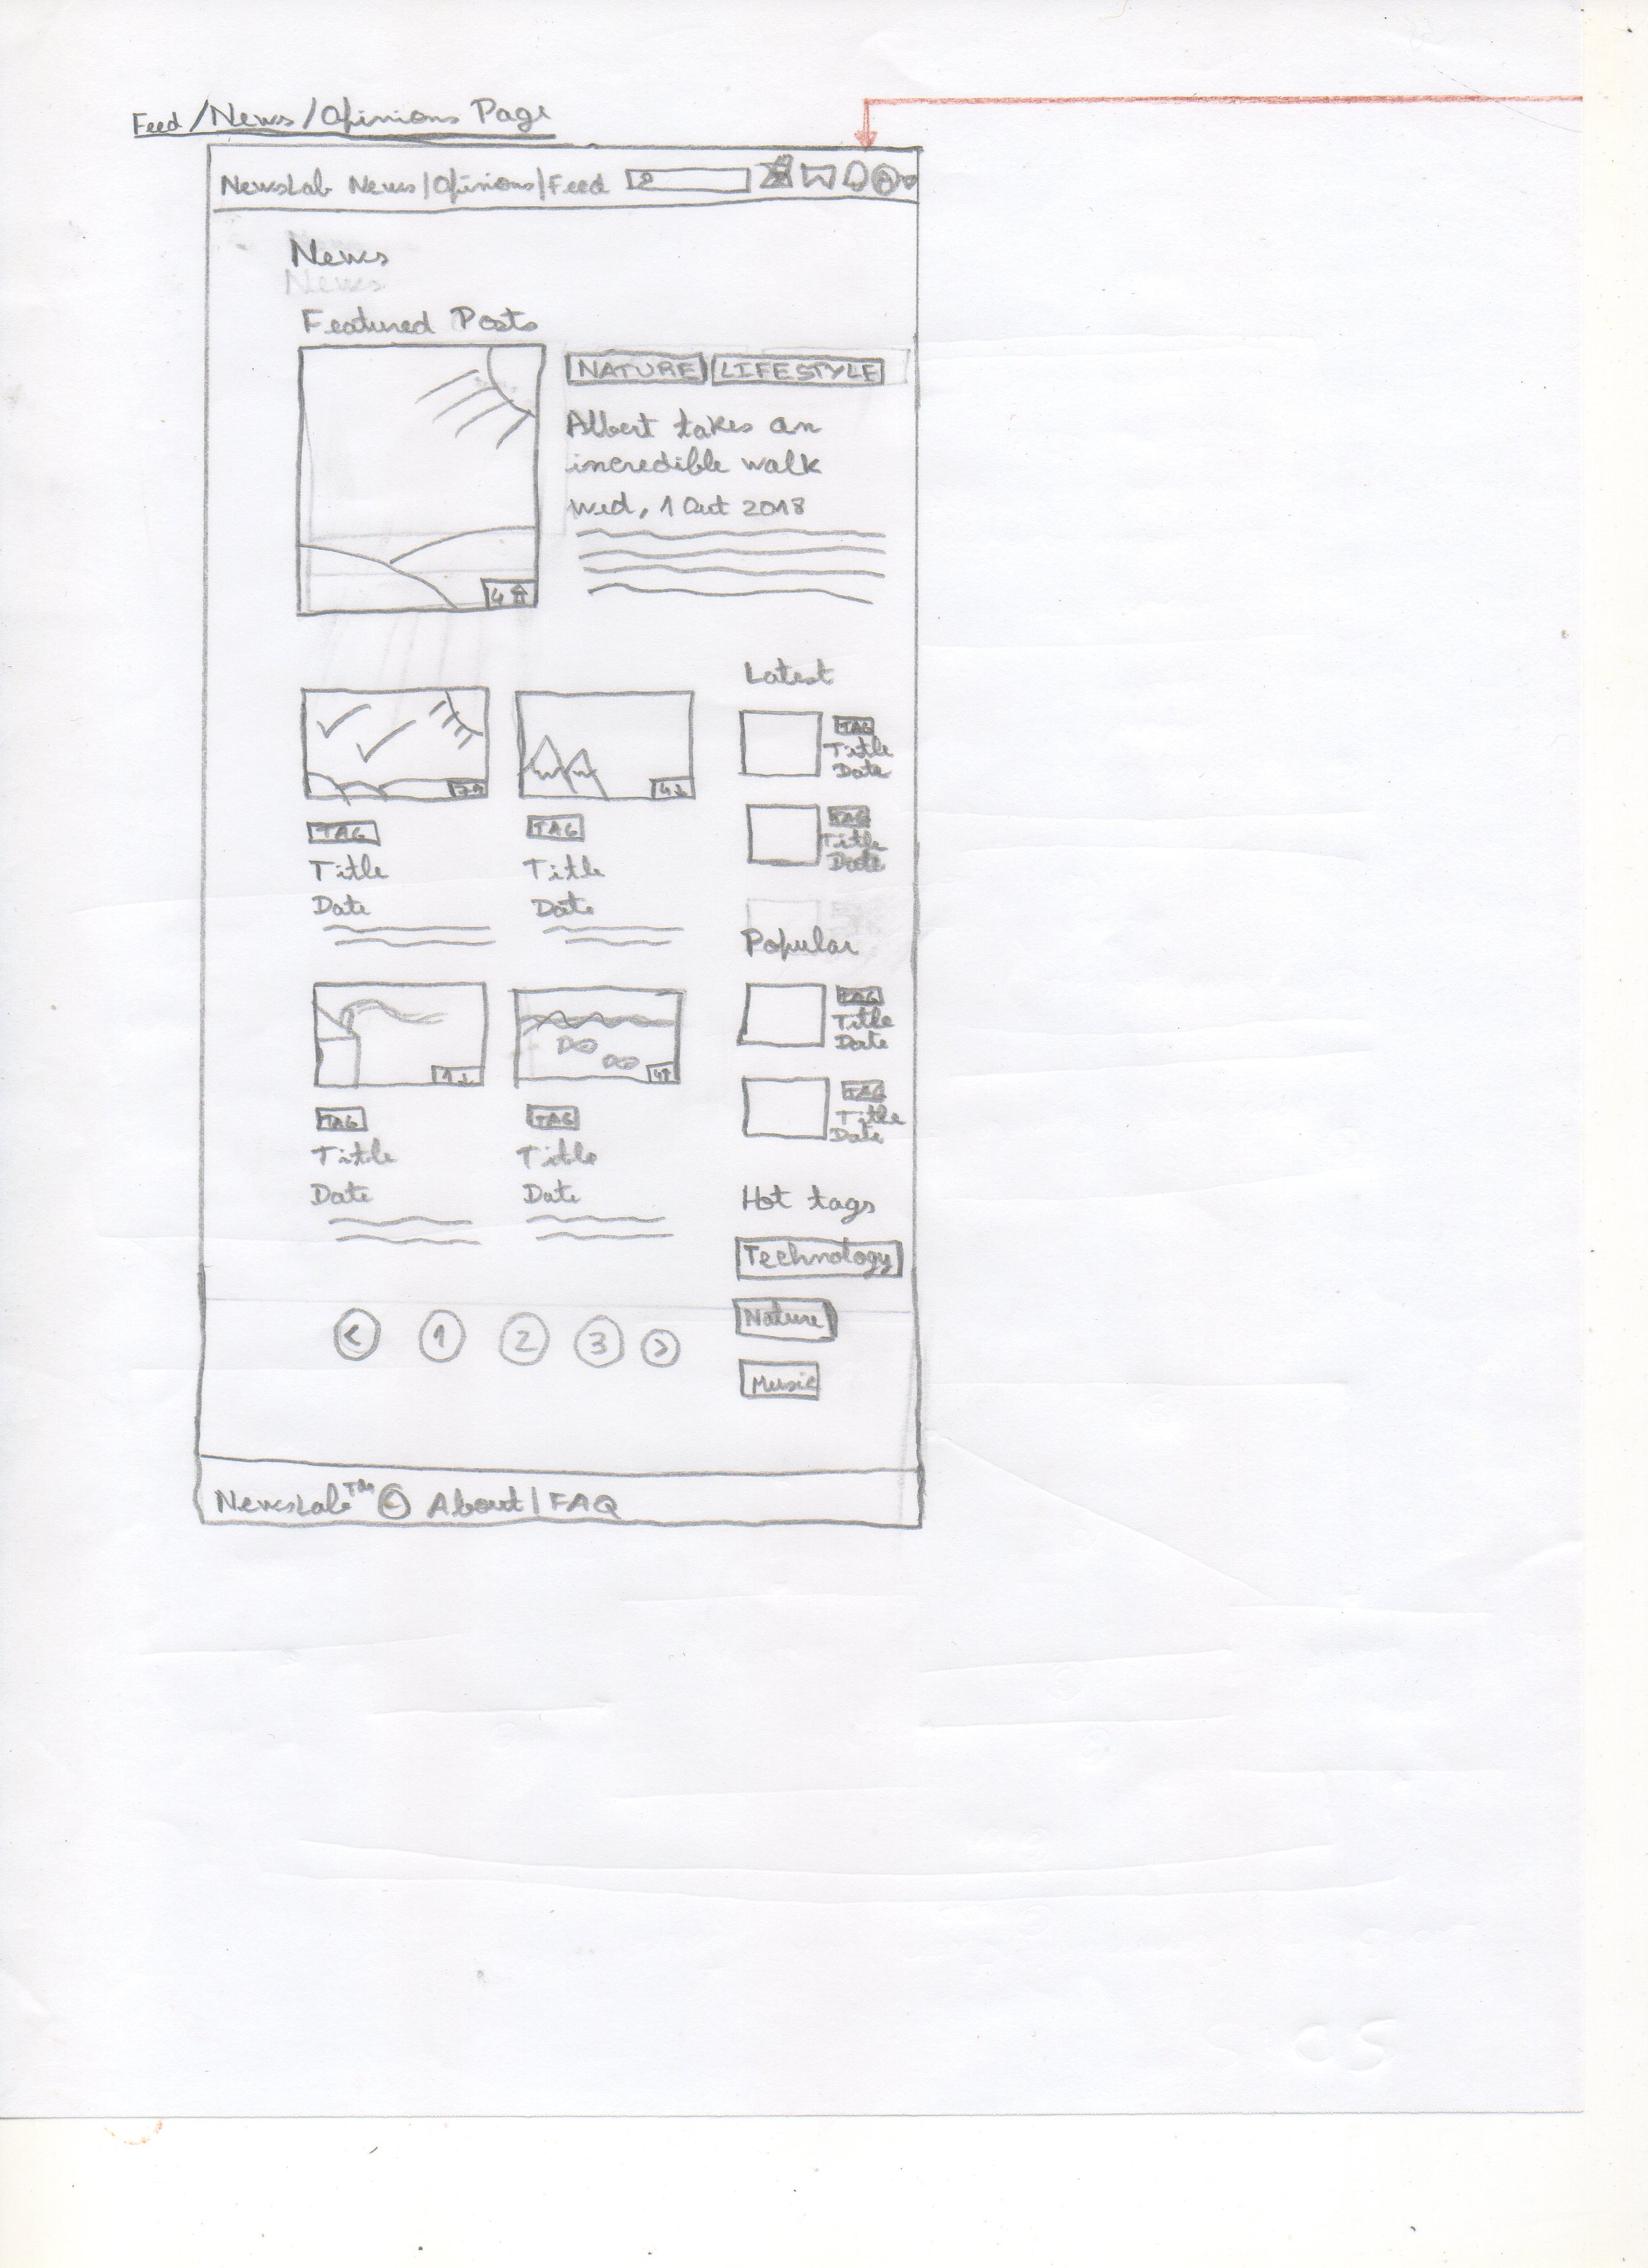 Feed/News/Opinions Page
NewsLab News|Opinions|Feed
News
News
Featured Posts
NATURE LIFESTYLE
Albert takes an
incredible walk
Wed, 1 Out 2018
4
Latest
TAG
Title
Date
TAG
Title
Date
4
TAG
Title
Date
TAG
Title
Date
Popular
TAG
Title
Date
TAG
Title
Date
1
4
TAG
Title
Date
TAG
Title
Date
Hot tags
Technology
Nature
Music
< 1 2 3 >
NewsLab™ © About | FAQ